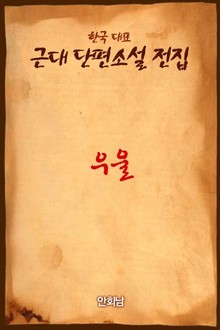 한국 대표
근대 단편소설 전집
우울
안회남